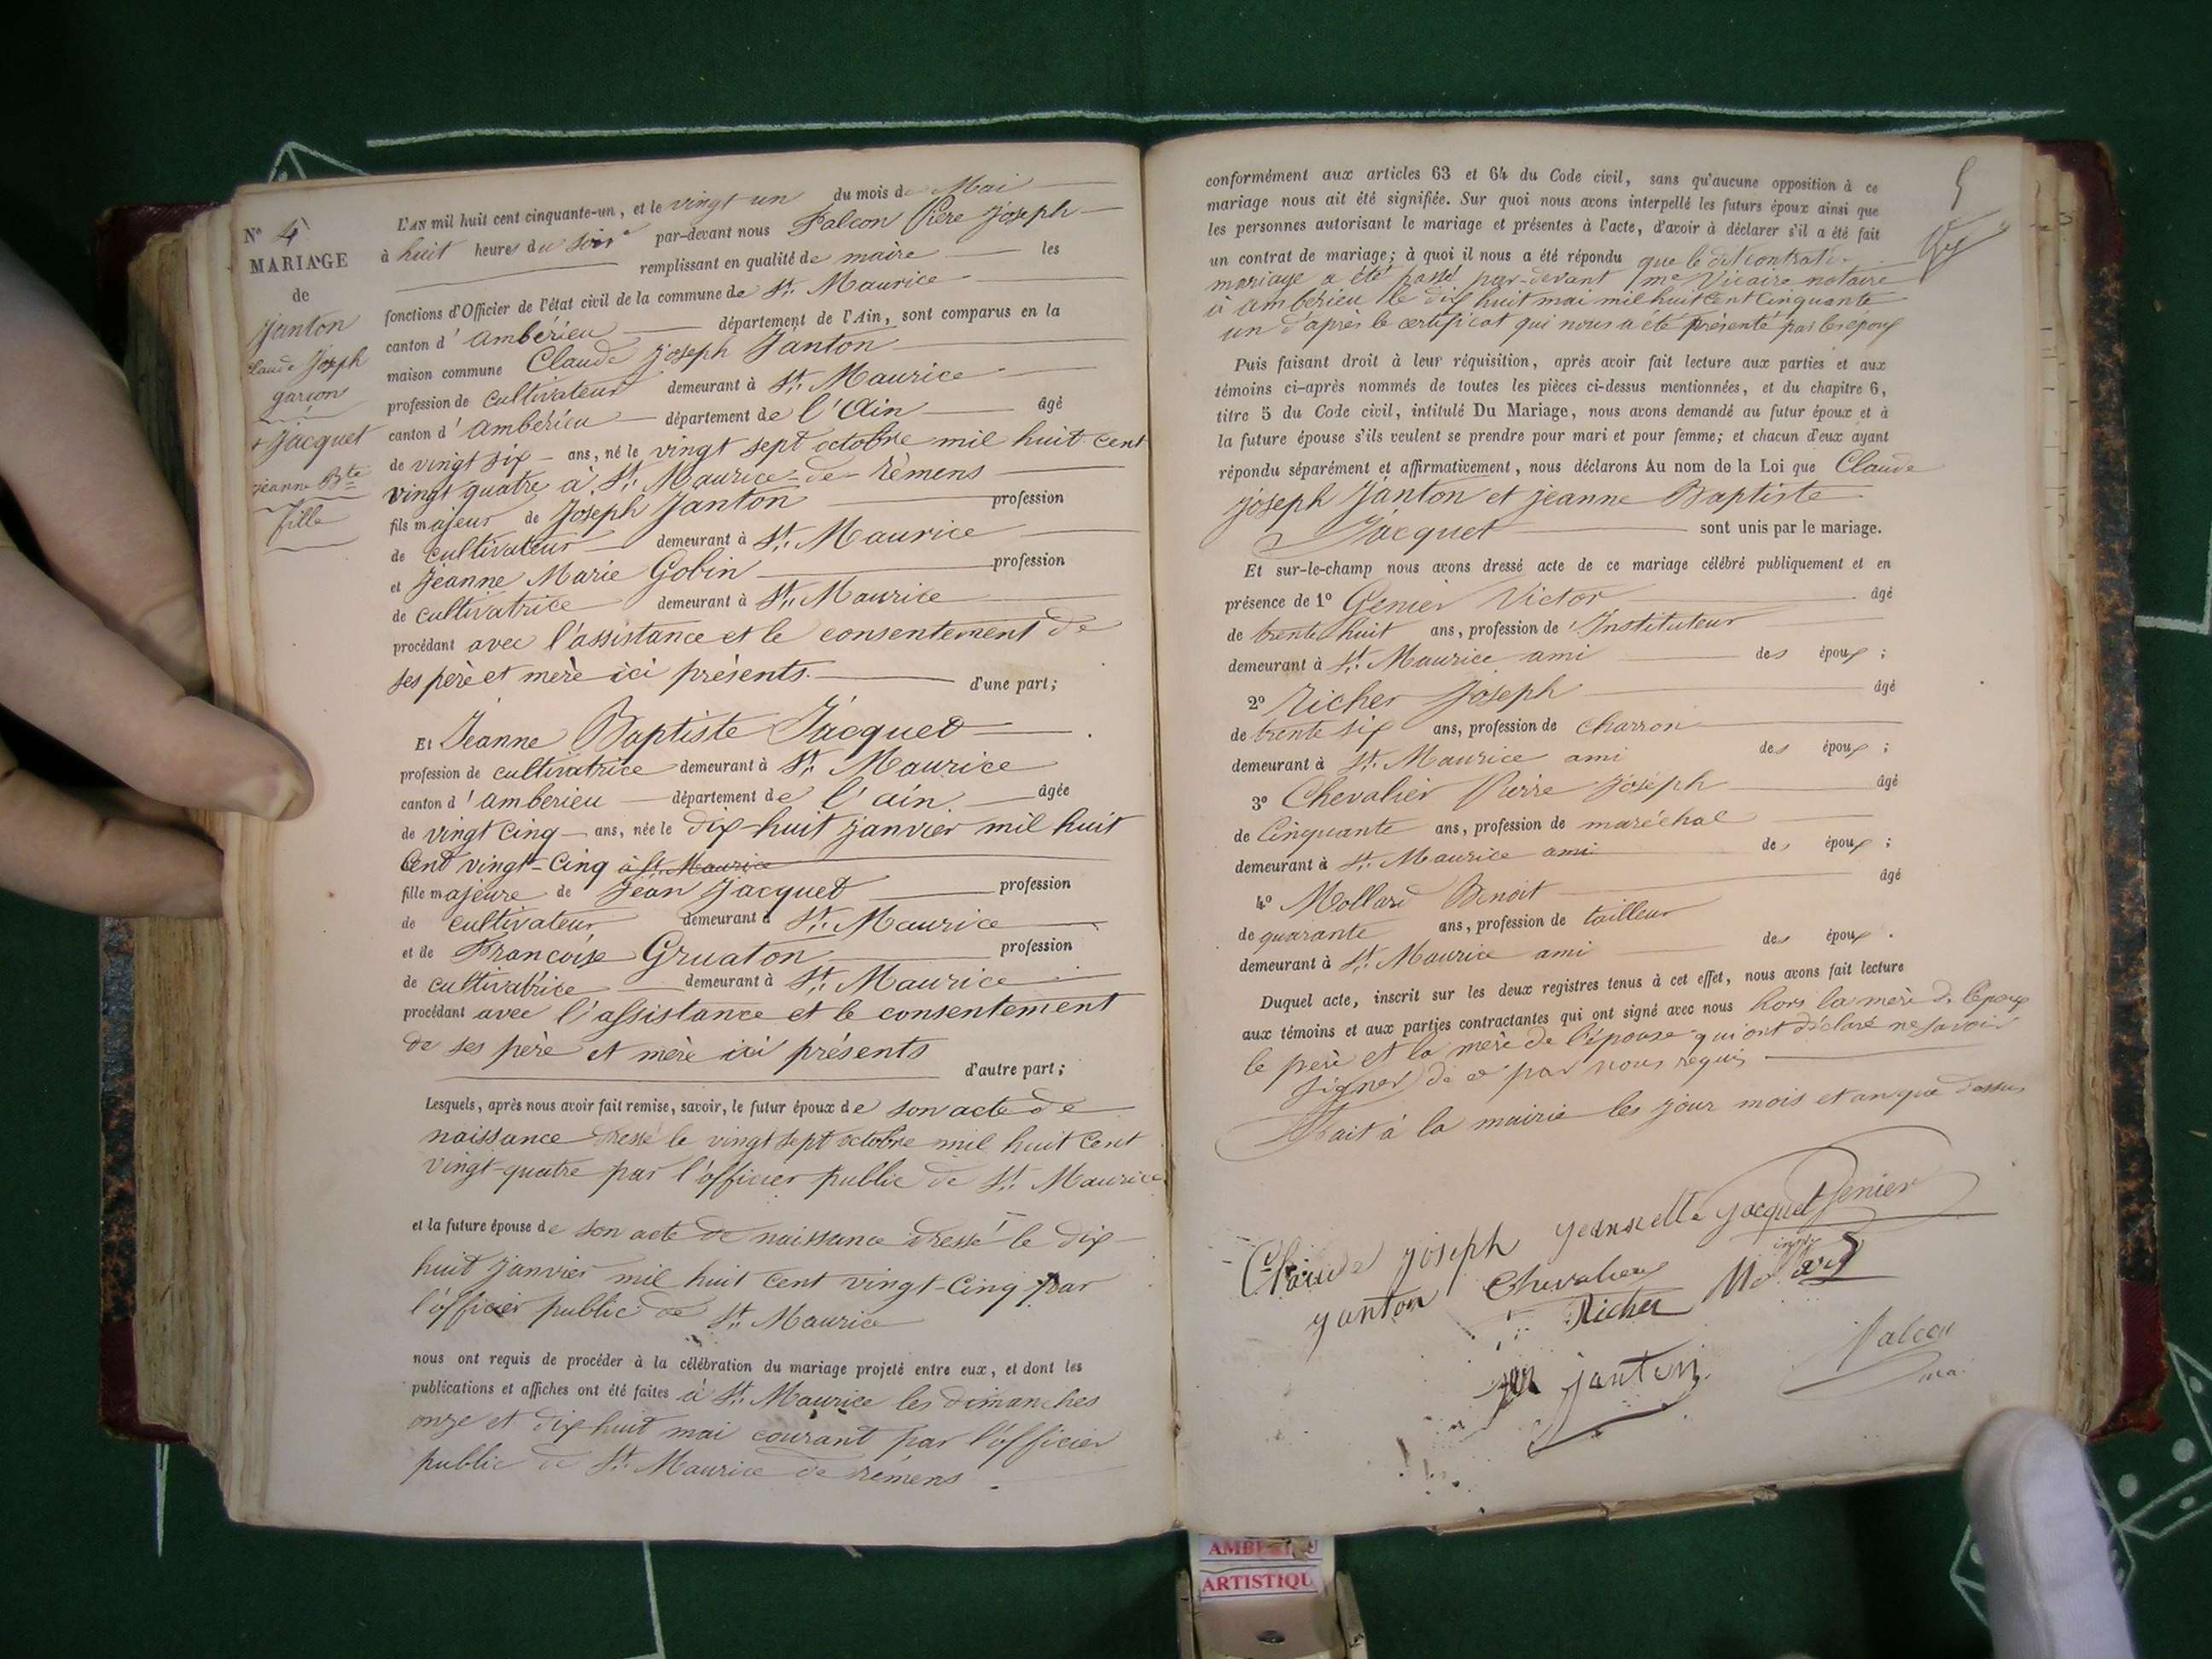 N° 4
MARIAGE
de
Janton
Claude Joseph
garçon
+ Jacquet
Jeanne Bte
fille
L'AN mil huit cent cinquante-un, et le vingt un du mois de Mai
à huit heures du soir par-devant nous Falcon Pière Joseph
remplissant en qualité de maire les
fonctions d'Officier de l'état civil de la commune de St. Maurice
canton d'Ambérieu département de l'Ain, sont comparus en la
maison commune Claude Joseph Janton
profession de cultivateur demeurant à St. Maurice
canton d'Ambérieu département de l'Ain âgé
de vingt six ans, né le vingt sept octobre mil huit cent
vingt quatre à St. Maurice-de-Rémens
fils majeur de Joseph Janton profession
de cultivateur demeurant à St. Maurice
et Jeanne Marie Gobin profession
de cultivatrice demeurant à St. Maurice
procédant avec l'assistance et le consentement de
ses père et mère ici présents. d'une part;
Et Jeanne Baptiste Jacquet
profession de cultivatrice demeurant à St. Maurice
canton d'Amberieu département de l'ain âgée
de vingt cinq ans, née le dix-huit janvier mil huit
Cent vingt-Cinq à St. Maurice
fille majeure de Jean Jacquet profession
de cultivateur demeurant à St. Maurice
et de Francoise Gruaton profession
de cultivatrice demeurant à St. Maurice
procédant avec l'assistance et le consentement
de ses père et mère ici présents
d'autre part;
Lesquels, après nous avoir fait remise, savoir, le futur époux de son acte de
naissance dressé le vingt sept octobre mil huit Cent
vingt-quatre par l'officier public de St. Maurice
et la future épouse de son acte de naissance dressé le dix-
huit janvier mil huit Cent vingt-Cinq par
l'officier public de St. Maurice
nous ont requis de procéder à la célébration du mariage projeté entre eux, et dont les
publications et affiches ont été faites à St. Maurice les dimanches
onze et dix-huit mai courant par l'officier
public de St. Maurice de Rémens
5
conformément aux articles 63 et 64 du Code civil, sans qu'aucune opposition à ce
mariage nous ait été signifiée. Sur quoi nous avons interpellé les futurs époux ainsi que
les personnes autorisant le mariage et présentes à l'acte, d'avoir à déclarer s'il a été fait
un contrat de mariage; à quoi il nous a été répondu que le dit contrat de
mariage a été passé par-devant me Vicaire notaire
à Ambérieu le dix huit mai mil huit Cent Cinquante
un d'après le certificat qui nous a été présenté par les époux
Puis faisant droit à leur réquisition, après avoir fait lecture aux parties et aux
témoins ci-après nommés de toutes les pièces ci-dessus mentionnées, et du chapitre 6,
titre 5 du Code civil, intitulé Du Mariage, nous avons demandé au futur époux et à
la future épouse s'ils veulent se prendre pour mari et pour femme; et chacun d'eux ayant
répondu séparément et affirmativement, nous déclarons Au nom de la Loi que Claude
Joseph Janton et Jeanne Baptiste
Jacquet sont unis par le mariage.
Et sur-le-champ nous avons dressé acte de ce mariage célébré publiquement et en
présence de 1° Genier Victor âgé
de trente huit ans, profession de Instituteur
demeurant à St. Maurice ami des époux;
2° Richer Joseph âgé
de trente six ans, profession de charron
demeurant à St. Maurice ami des époux;
3° Chevalier Pierre Joseph âgé
de Cinquante ans, profession de maréchal
demeurant à St. Maurice ami des époux;
4° Mollard Benoit âgé
de quarante ans, profession de tailleur
demeurant à St. Maurice ami des époux.
Duquel acte, inscrit sur les deux registres tenus à cet effet, nous avons fait lecture
aux témoins et aux parties contractantes qui ont signé avec nous hors la mère de l'époux
le père et la mère de l'épouse qui ont déclaré ne savoir
signer de ce par nous requis
Fait à la mairie les jour mois et an que dessus
Claude Joseph Jeannette Jacquet Genier
Janton Chevalier
Richer
Janton
Falcon
AMBERIEU
ARTISTIQU